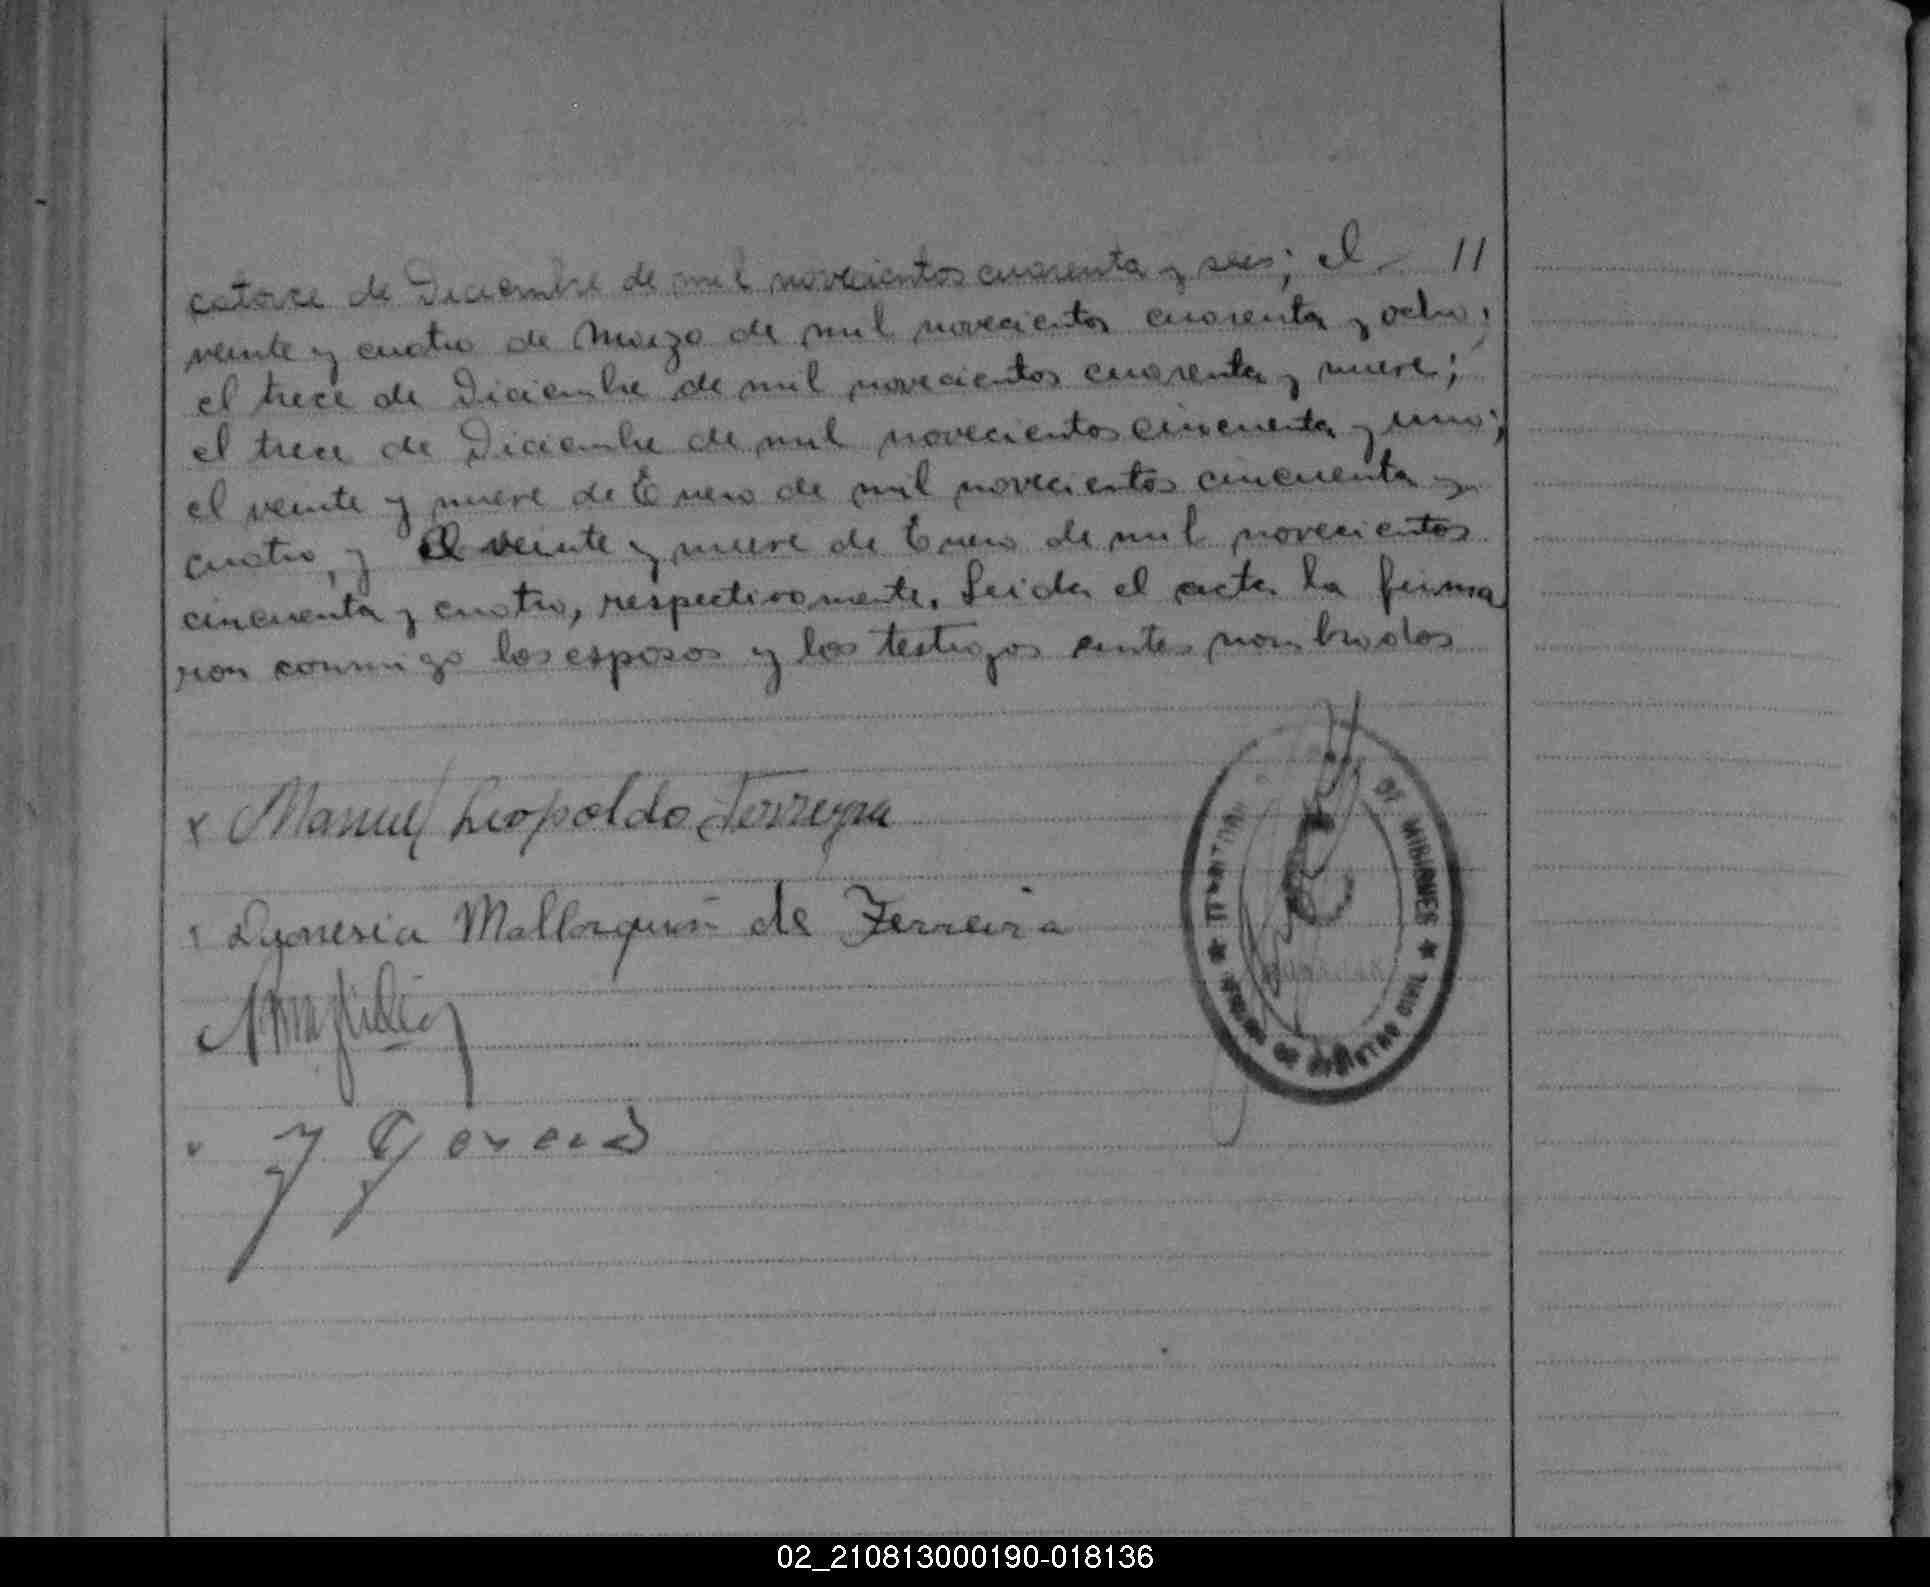 catorce de Diciembre de mil novecientos cuarenta y seis; el 11
veinte y cuatro de Marzo de mil novecientos cuarenta y ocho;
el trece de Diciembre de mil novecientos cuarenta y nueve;
el trece de Diciembre de mil novecientos cincuenta y uno;
el veinte y nueve de Enero de mil novecientos cincuenta y
cuatro, y el veinte y nueve de Enero de mil novecientos
cincuenta y cuatro, respectivamente. Leida el acta la firma
ron conmigo los esposos y los testigos antes nombrados
x Manuel Leopoldo Ferreyra
Dyonesia Mallorquin de Ferreira
DE MISIONES
REGISTRO CIVIL
02_210813000190-018136